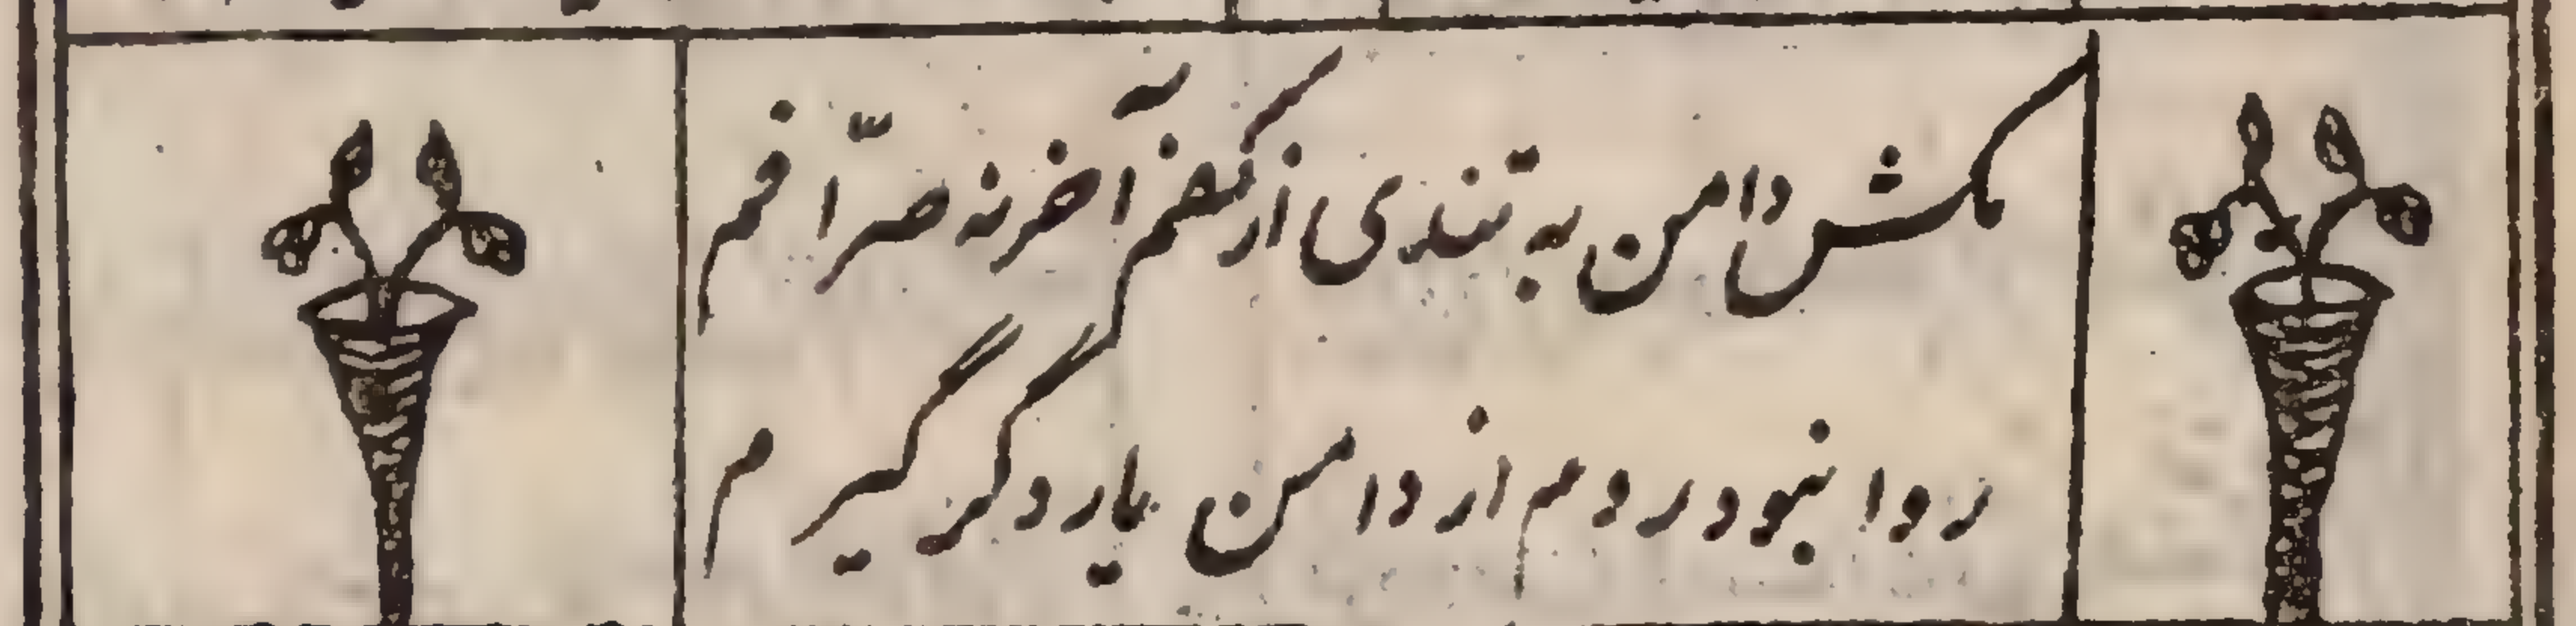 مکش دامن به تندی از کفم آخر نه صرّافم
روا نبود روم از دامن یار دگر گیرم